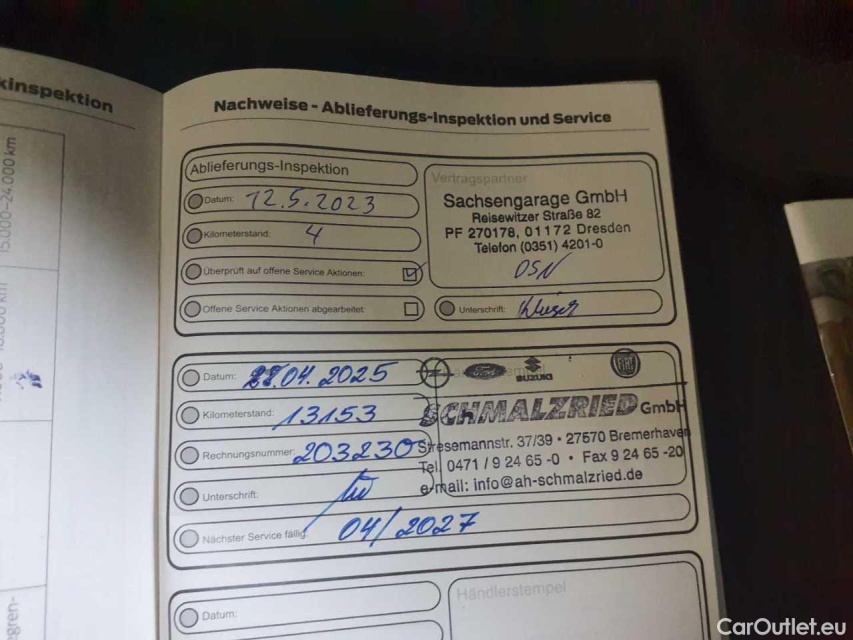 kinspektion
15.000–24.000 km
Nachweise - Ablieferungs-Inspektion und Service
Ablieferungs-Inspektion
Datum: 12.5.2023
Kilometerstand: 4
Überprüft auf offene Service Aktionen:
Offene Service Aktionen abgearbeitet:
Vertragspartner
Sachsengarage GmbH
Reisewitzer Straße 82
PF 270178, 01172 Dresden
Telefon (0351) 4201-0
OSN
Unterschrift:
Datum: 28.04.2025
Kilometerstand: 13153
Rechnungsnummer: 203230
Unterschrift:
Nächster Service fällig: 04/2027
Ford
SUZUKI
FIAT
SCHMALZRIED GmbH
Stresemannstr. 37/39 • 27570 Bremerhaven
Tel. 0471 / 9 24 65 -0 • Fax 9 24 65 -20
e-mail: info@ah-schmalzried.de
Datum:
Händlerstempel
egren-
CarOutlet.eu